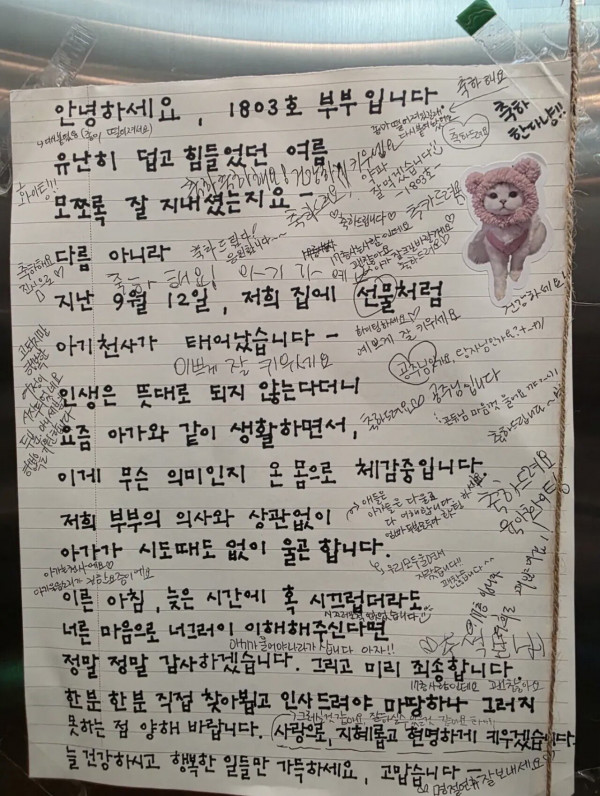 안녕하세요, 1803호 부부입니다
축하해요
축하
한다냥!!
축하드려요
유난히 덥고 힘들었던 여름
화이팅!!
축하축하해요! 건강하게 키우세요
모쪼록 잘 지내셨는지요
-1803호-
축하드려요
축하드립니다♡
다름 아니라
축하드려요!
응원합니다~
축하해요
축하해요! 아기가 예
지난 9월 12일, 저희 집에 선물처럼
축하드려요♡
건강하세요!
아기천사가 태어났습니다 -
화이팅하세요♡
예쁘게 잘 키우세요
이쁘게 잘 키우세요
공주님인가요, 왕자님인가요?
인생은 뜻대로 되지 않는다더니
공주님입니다
축하드려요♡♡
요즘 아가와 같이 생활하면서,
축하드립니다~
이게 무슨 의미인지 온 몸으로 체감중입니다.
축하드려요
육아화이팅
저희 부부의 의사와 상관없이
애들은
아가들은 다 울죠
다 이해합니다.
아가가 시도때도 없이 울곤 합니다.
우리 모두 울면서
자랐습니다!!
괜찮습니다~
이른 아침, 늦은 시간에 혹 시끄럽더라도
너른 마음으로 너그러이 이해해주신다면
아기가 울어야 나라가 삽니다 아자!!
정말 정말 감사하겠습니다. 그리고 미리 죄송합니다
한분 한분 직접 찾아뵙고 인사드려야 마땅하나 그러지
못하는 점 양해 바랍니다. 사랑으로, 지혜롭고 현명하게 키우겠습니다.
늘 건강하시고 행복한 일들만 가득하세요, 고맙습니다 -
명절연휴 잘 보내세요♡